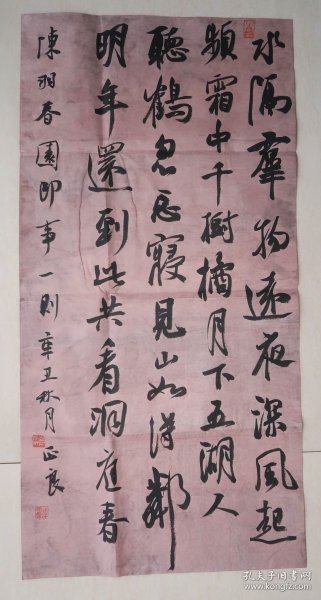 水隔群物遠夜深風起
頻霜中千樹橘月下五湖人
聽鶴忽忘寢見山如得鄰
明年還到此共看洞庭春
陳羽春園即事一則 辛丑秋月 正良
孔夫子旧书网